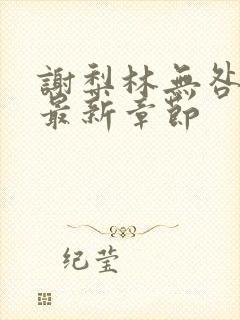 謝梨林無咎
最新章節
纪莹